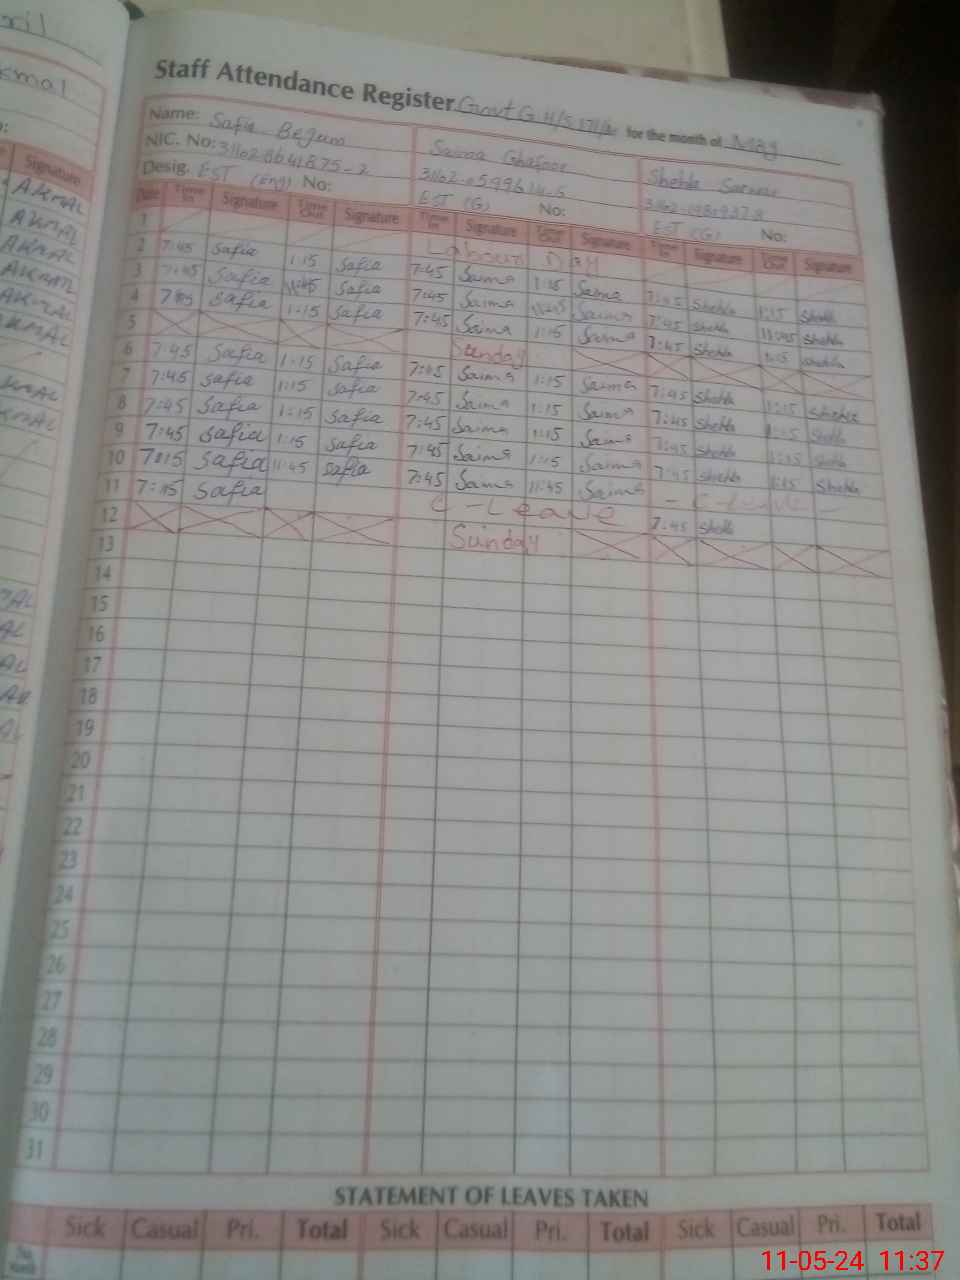 Staff Attendance Register Govt G H/S 171/ for the month of May
Name: Safia Begum Saima Ghafoor Shehla Sarwar
NIC. No: 31102
Desig. EST (Eng) No: EST (G) No: EST (G) No:
Date Time In Signature Time Out Signature Time In Signature Time OUT Signature Time In Signature Time OUT Signature
1 Labour Day
2 7:45 Safia 1:15 Safia 7:45 Saima 1:15 Saima 7:45 Shehla 1:15 Shehla
3 7:45 Safia 11:45 Safia 7:45 Saima 11:45 Saima 7:45 Shehla 11:45 Shehla
4 7:45 Safia 1:15 Safia 7:45 Saima 1:15 Saima 7:45 Shehla 1:15 Shehla
5 Sunday
6 7:45 Safia 1:15 Safia 7:45 Saima 1:15 Saima 7:45 Shehla 1:15 Shehla
7 7:45 Safia 1:15 Safia 7:45 Saima 1:15 Saima 7:45 Shehla 1:15 Shehla
8 7:45 Safia 1:15 Safia 7:45 Saima 1:15 Saima 7:45 Shehla 1:15 Shehla
9 7:45 Safia 1:15 Safia 7:45 Saima 1:15 Saima 7:45 Shehla 1:15 Shehla
10 Safia 11:45 Safia 7:45 Saima 11:45 Saima - C-Leave -
11 Safia C-Leave 7:45 Shehla
12 Sunday
13
14
15
16
17
18
19
20
21
22
23
24
25
26
27
28
29
30
31
STATEMENT OF LEAVES TAKEN
Sick Casual Pri. Total Sick Casual Pri. Total Sick Casual Pri. Total
11-05-24 11:37
Signature
AKMAL
AKMAL
AKMAL
AKMAL